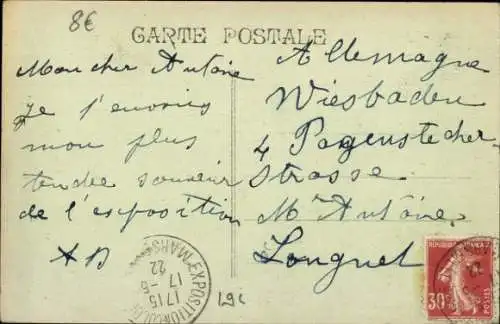 8€
CARTE POSTALE
Mon cher Antoine
je t'envoies
mon plus
tendre souvenir
de l'exposition
AB
Allemagne
Wiesbaden
4 Pagenstecher-
strasse
Mr Antoine
Longuet
EXPOSITION COLON
MARS
1715
17-6
22
19c
REPUBLIQUE FRANÇAISE
30c
POSTES